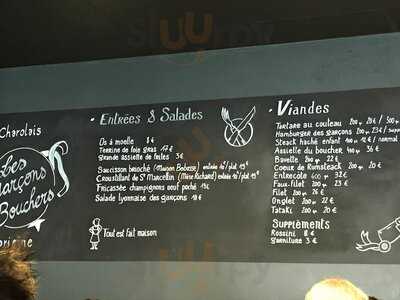 Charolais
Les
Garçons
Bouchers
Entrées & Salades
Os à moelle 8 €
Terrine de foie gras 17 €
Grande assiette de frites 5 €
Saucisson brioché (Maison Bobosse) entrée 10/plat 19 €
Croustillant de St Marcellin (Mère Richard) entrée 10/plat 19 €
Fricassée champignons oeuf poché 13 €
Salade lyonnaise des garçons 18 €
Tout est fait maison
Viandes
Tartare au couteau 200 gr 20 € / 300
Hamburger des garçons 200 gr 23 € /
Steack haché enfant 100 gr 10 €
Assiette du boucher 400 gr 36 €
Bavette 200 gr 22 €
Coeur de Rumsteack 200 gr 20 €
Entrecote 400 gr 32 €
Faux-filet 200 gr 23 €
Filet 200 gr 26 €
Onglet 200 gr 22 €
Tataki 200 gr 20 €
Suppléments
Rossini 8 €
Garniture 3 €
sluurpy